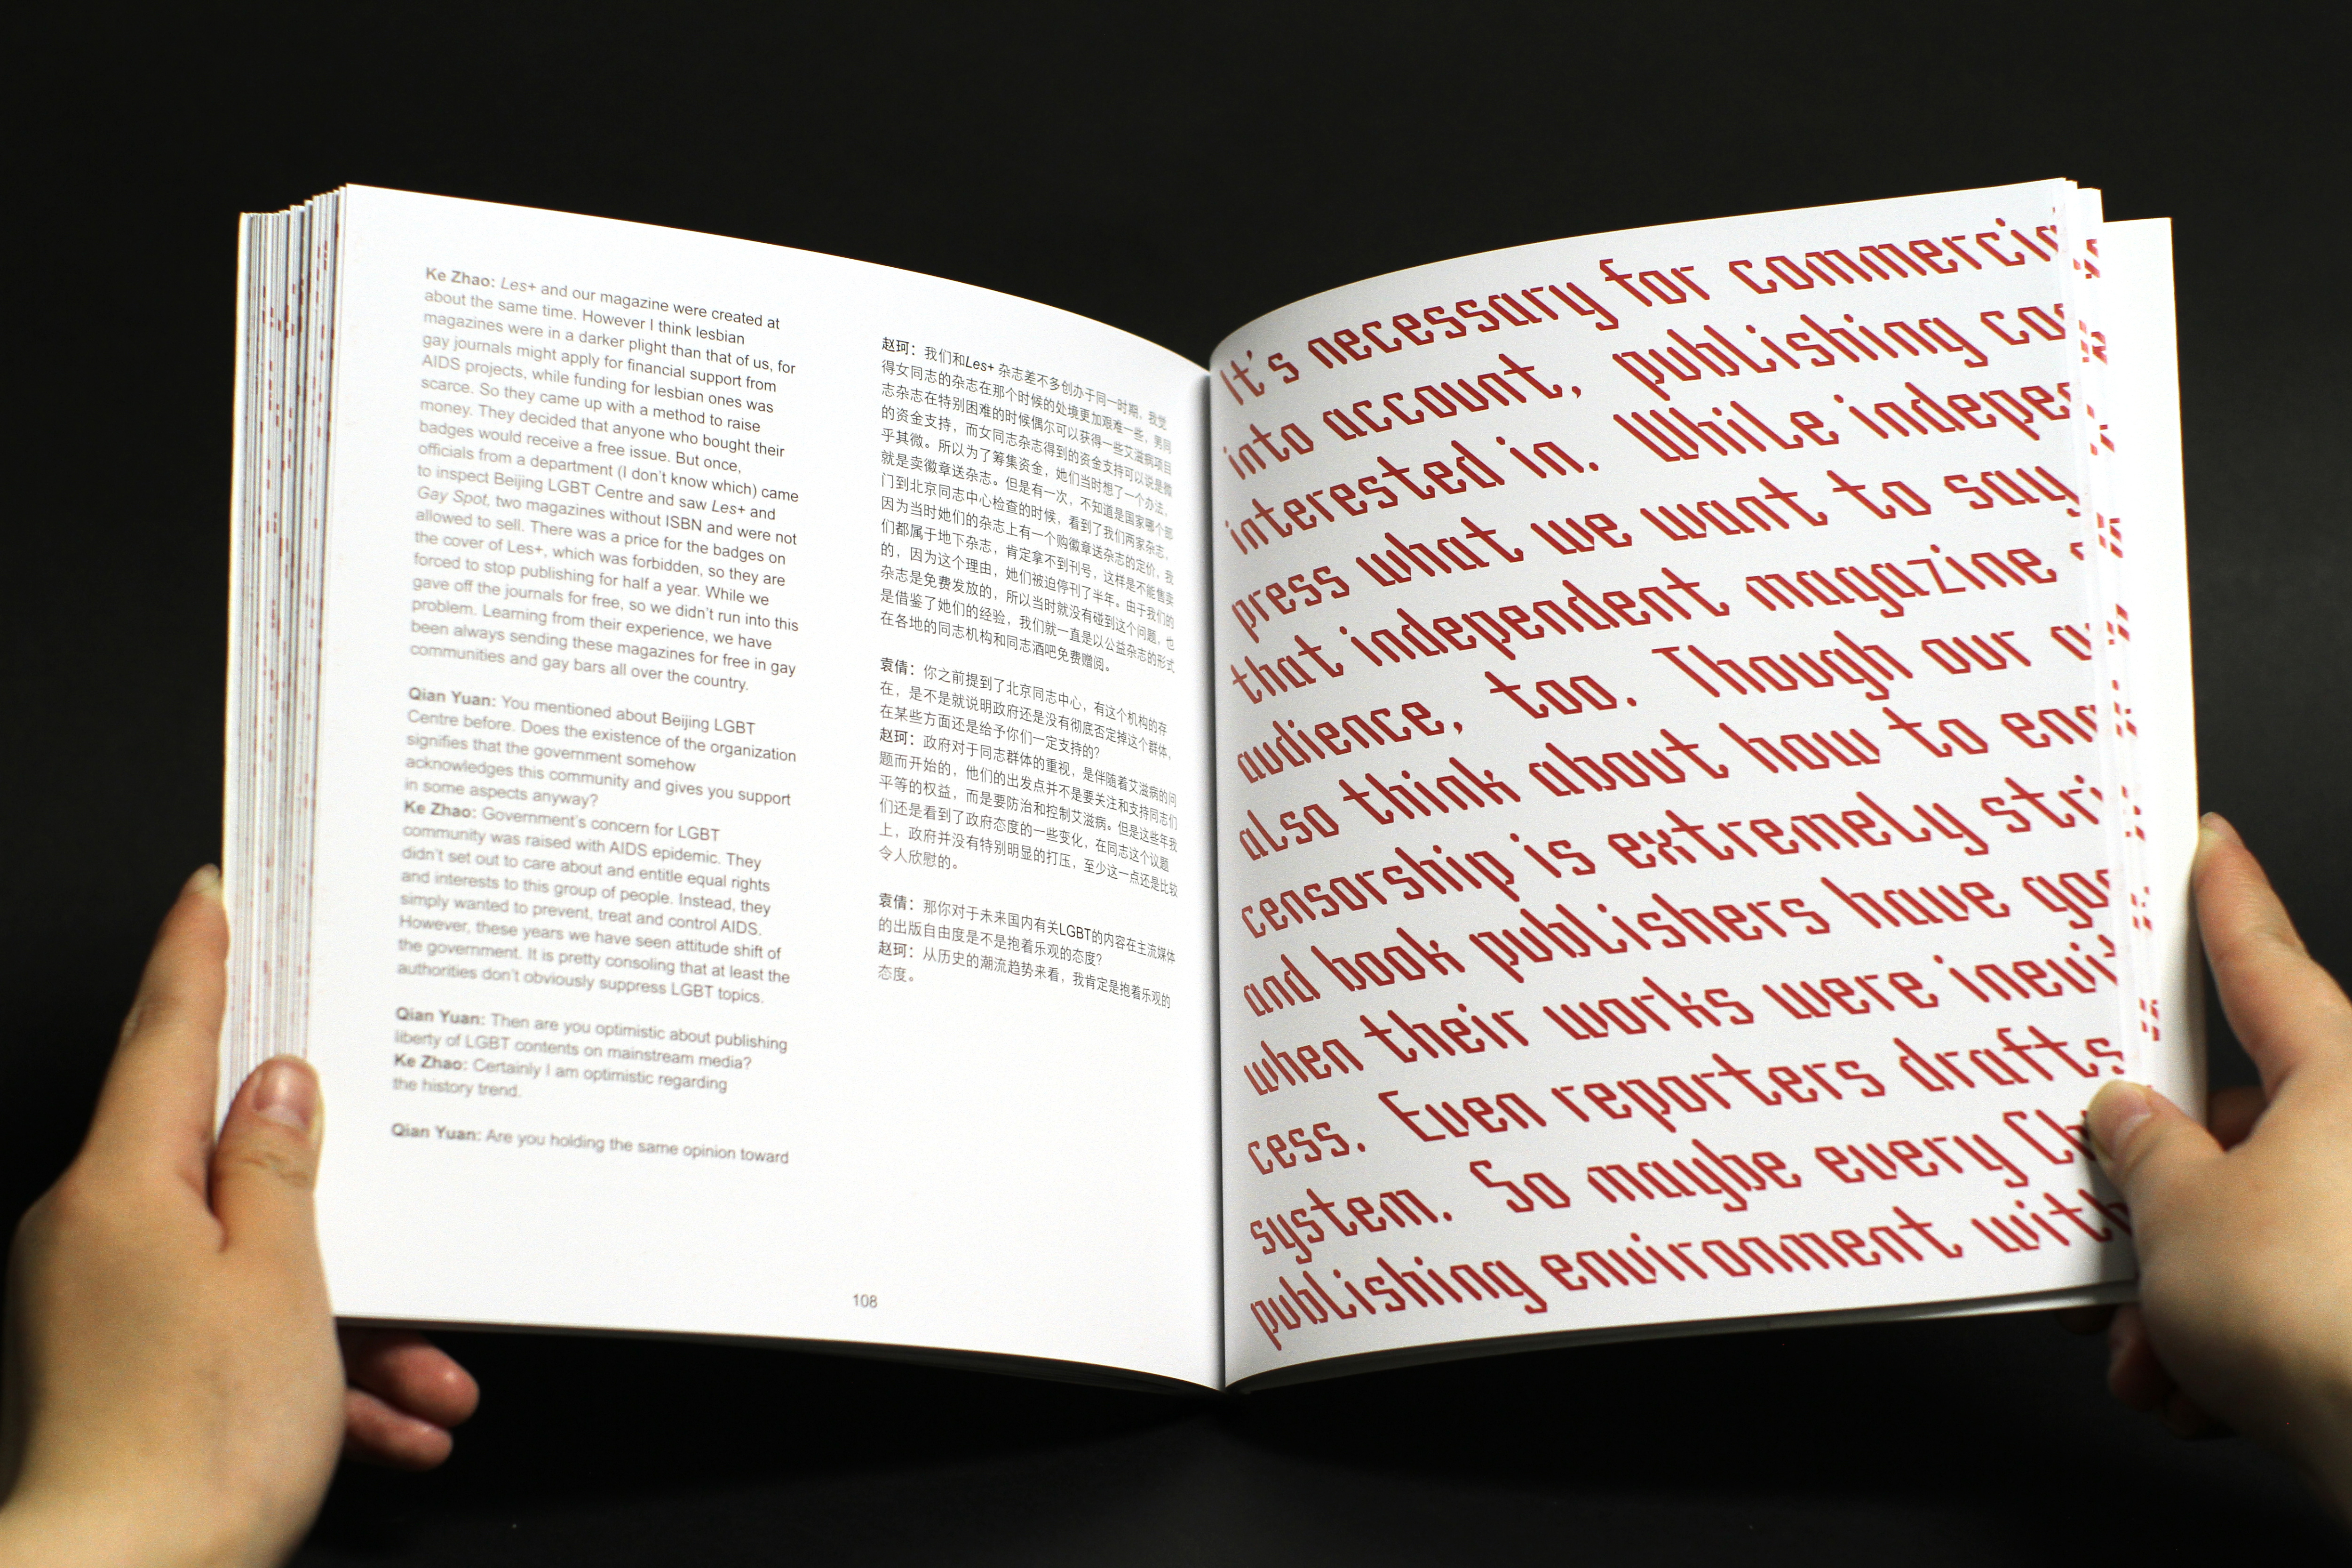 Ke Zhao: Les+ and our magazine were created at
about the same time. However I think lesbian
magazines were in a darker plight than that of us, for
gay journals might apply for financial support from
AIDS projects, while funding for lesbian ones was
scarce. So they came up with a method to raise
money. They decided that anyone who bought their
badges would receive a free issue. But once,
officials from a department (I don't know which) came
to inspect Beijing LGBT Centre and saw Les+ and
Gay Spot, two magazines without ISBN and were not
allowed to sell. There was a price for the badges on
the cover of Les+, which was forbidden, so they are
forced to stop publishing for half a year. While we
gave off the journals for free, so we didn't run into this
problem. Learning from their experience, we have
been always sending these magazines for free in gay
communities and gay bars all over the country.
Qian Yuan: You mentioned about Beijing LGBT
Centre before. Does the existence of the organization
signifies that the government somehow
acknowledges this community and gives you support
in some aspects anyway?
Ke Zhao: Government's concern for LGBT
community was raised with AIDS epidemic. They
didn't set out to care about and entitle equal rights
and interests to this group of people. Instead, they
simply wanted to prevent, treat and control AIDS.
However, these years we have seen attitude shift of
the government. It is pretty consoling that at least the
authorities don't obviously suppress LGBT topics.
Qian Yuan: Then are you optimistic about publishing
liberty of LGBT contents on mainstream media?
Ke Zhao: Certainly I am optimistic regarding
the history trend.
Qian Yuan: Are you holding the same opinion toward
赵珂：我们和Les+ 杂志差不多创办于同一时期，我觉
得女同志的杂志在那个时候的处境更加艰难一些，男同
志杂志在特别困难的时候偶尔可以获得一些艾滋病项目
的资金支持，而女同志杂志得到的资金支持可以说是微
乎其微。所以为了筹集资金，她们当时想了一个办法，
就是卖徽章送杂志。但是有一次，不知道是国家哪个部
门到北京同志中心检查的时候，看到了我们两家杂志，
因为当时她们的杂志上有一个购徽章送杂志的定价，我
们都属于地下杂志，肯定拿不到刊号，这样是不能售卖
的，因为这个理由，她们被迫停刊了半年。由于我们的
杂志是免费发放的，所以当时就没有碰到这个问题，也
是借鉴了她们的经验，我们就一直是以公益杂志的形式
在各地的同志机构和同志酒吧免费赠阅。
袁倩：你之前提到了北京同志中心，有这个机构的存
在，是不是就说明政府还是没有彻底否定掉这个群体，
在某些方面还是给予你们一定支持的？
赵珂：政府对于同志群体的重视，是伴随着艾滋病的问
题而开始的，他们的出发点并不是要关注和支持同志们
平等的权益，而是要防治和控制艾滋病。但是这些年我
们还是看到了政府态度的一些变化，在同志这个议题
上，政府并没有特别明显的打压，至少这一点还是比较
令人欣慰的。
袁倩：那你对于未来国内有关LGBT的内容在主流媒体
的出版自由度是不是抱着乐观的态度？
赵珂：从历史的潮流趋势来看，我肯定是抱着乐观的
态度。
108
It's necessary for commercia
into account, publishing co
interested in. While indepe
press what we want to say
that independent magazine
audience, too. Though our
also think about how to en
censorship is extremely stri
and book publishers have go
when their works were inevi
cess. Even reporters drafts
system. So maybe every Ch
publishing environment with